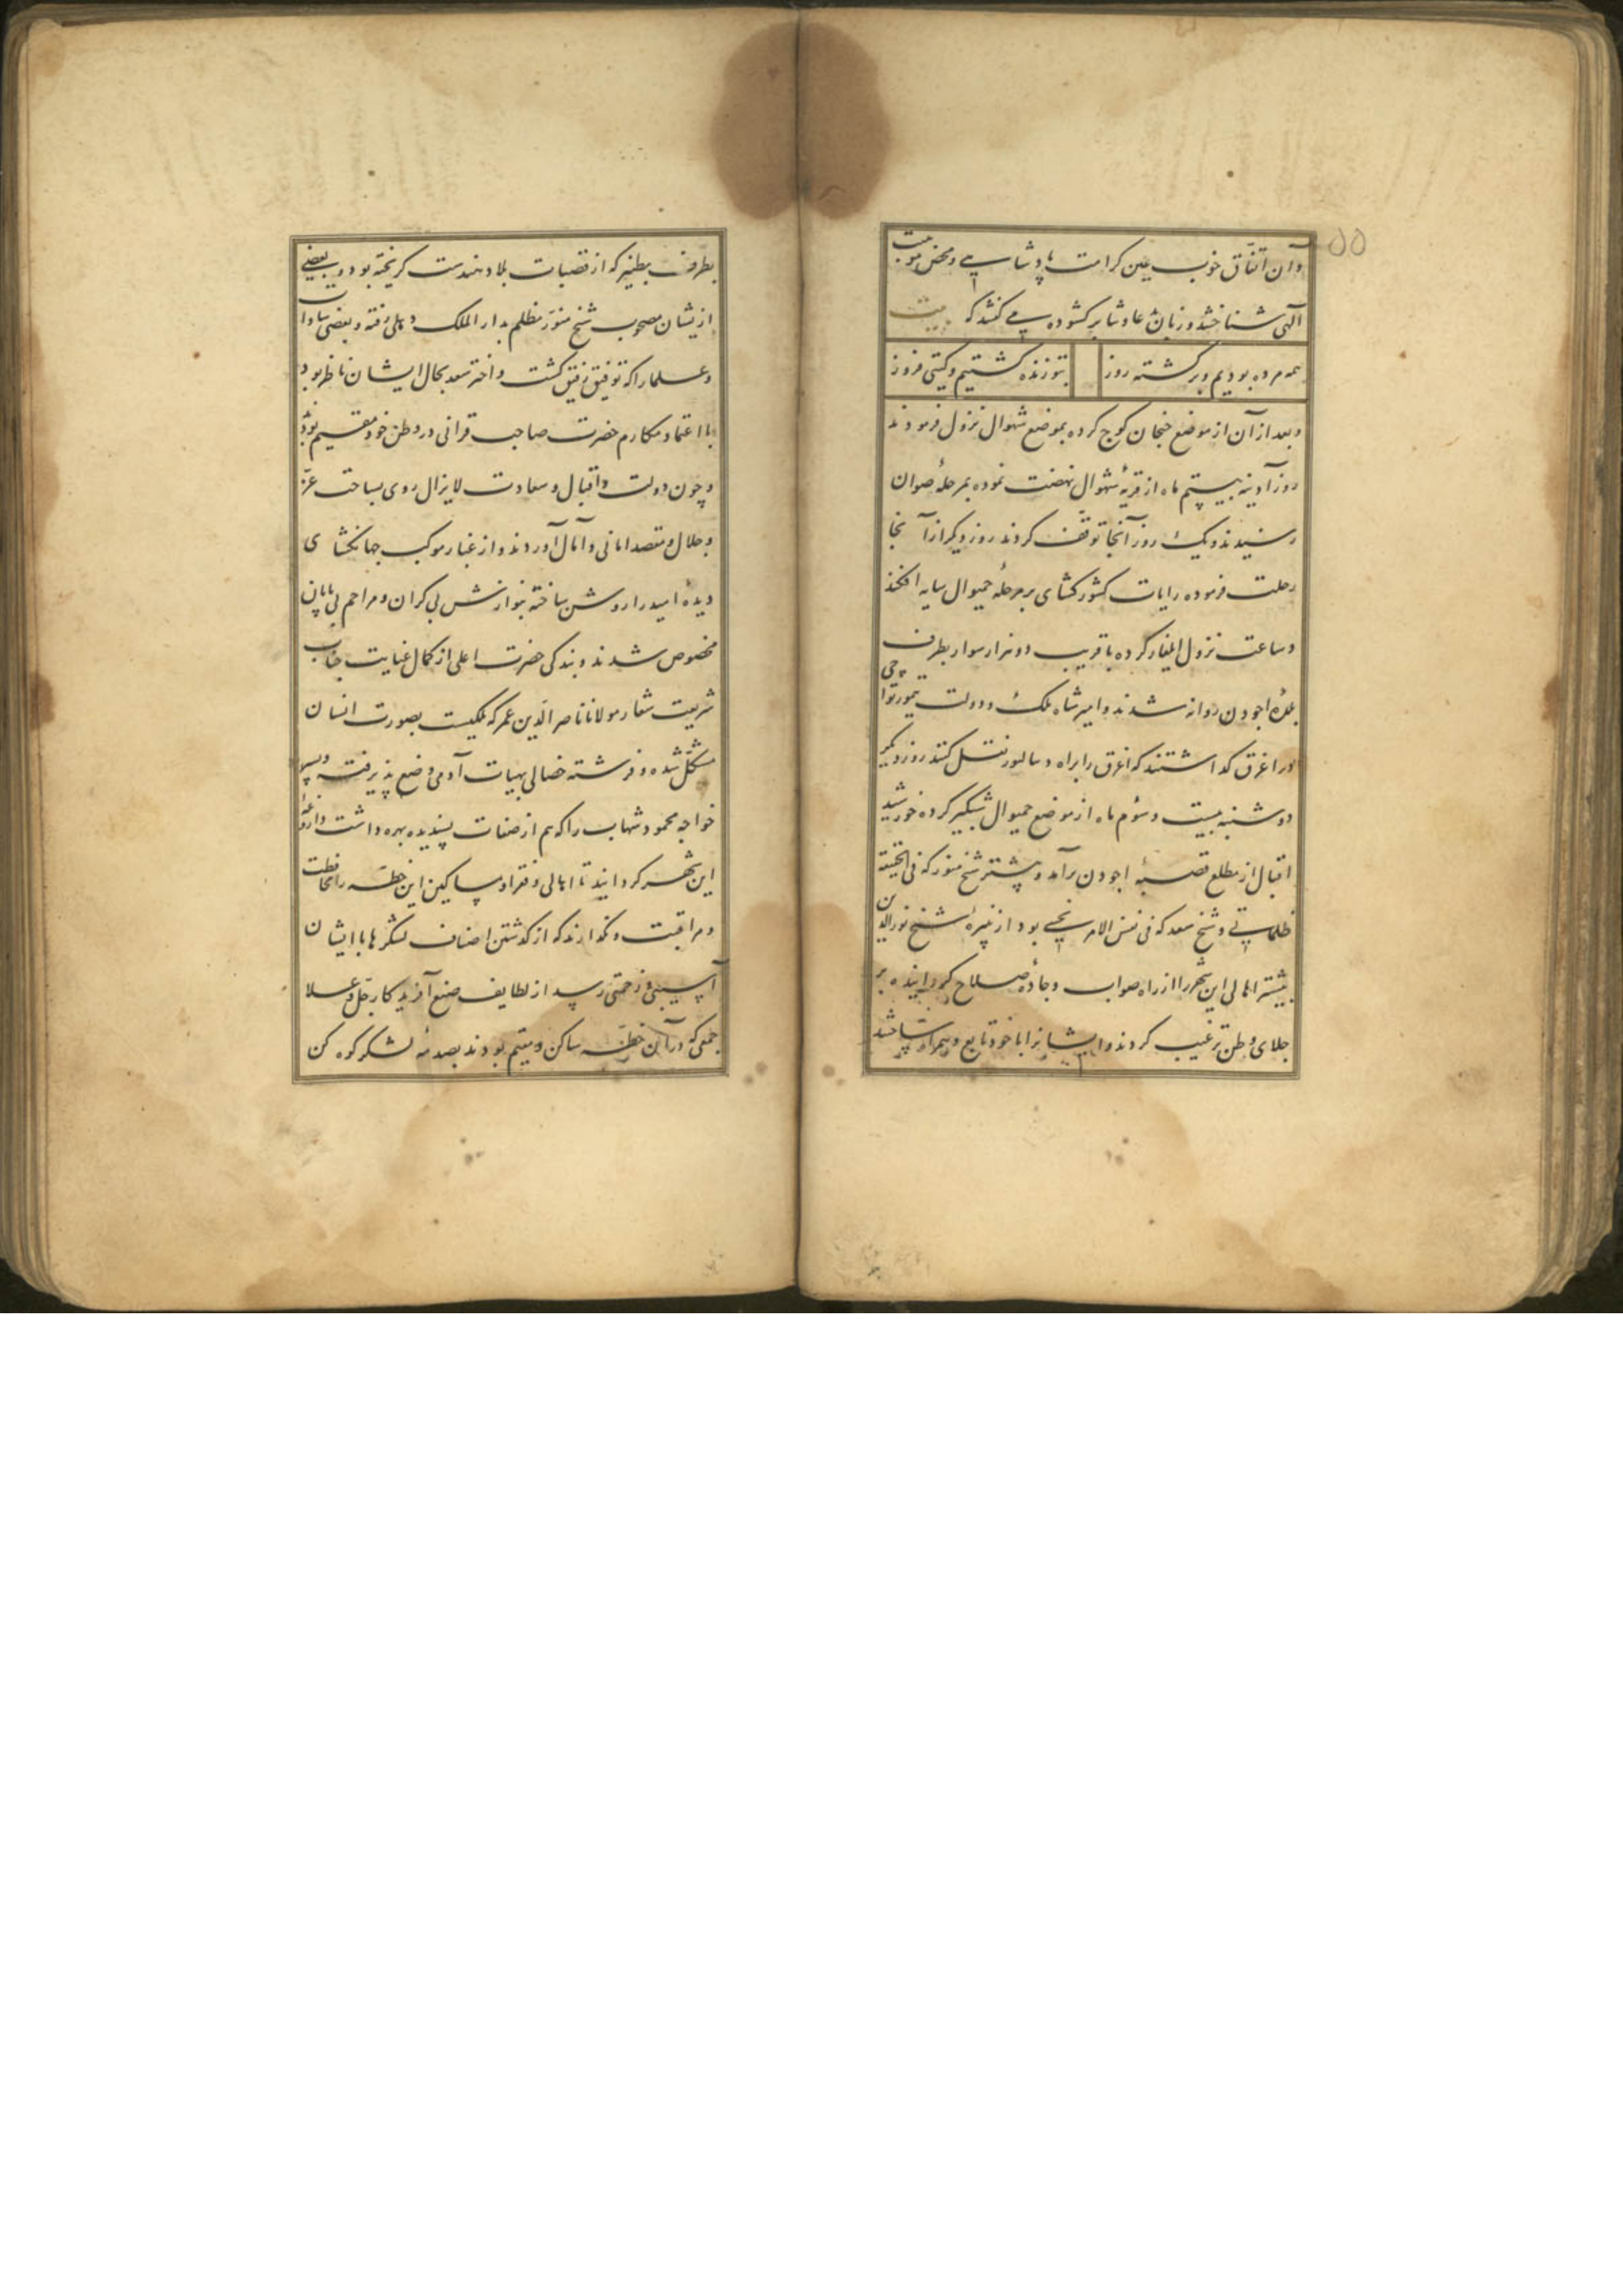 ۵۵
و آن اتفاق خوب عین کرامت پادشاهی و محض موهبت
آلهی شناختند و زبان دعا و ثنا برکشوده می کفتند که بیت
همه مرده بودیم و برکشته روز بتو زنده کشتیم و کیتی فروز
و بعد از آن از موضع جنجان کوچ کرده بموضع شهوال نزول فرمودند
روز آدینه بیستم ماه از قریهٔ شهوال نهضت نموده بمرحلهٔ صوان
رسیدند و یک روز آنجا توقف کردند روز دیکر از آنجا
رحلت فرموده رایات کشورکشای بر مرحلهٔ جمیوال سایه افکند
و ساعت نزول ایلغار کرده با قریب ده هزار سوار بطرف
بلدهٔ اجودن روانه شدند و امیر شاه ملک و دولت تیمور تواچی
در اغرق کذاشتند که اغرق را براه دیبالپور نقل کنند روز دیکر
دوشنبه بیست و سوم ماه از موضع جمیوال شبکیر کرده خورشید
اقبال از مطلع قصبهٔ اجودن برآمد و پیشتر شیخ منور که فی الحقیقة
ظلمانی و شیخ سعد که فی نفس الامر نحسی بود از نبیرهٔ شیخ نورالدین
بیشتر اهالی این شهر را از راه صواب و جادهٔ صلاح کردانیده بر
جلای وطن ترغیب کردند و ایشانرا با خود تابع و همراه ساختند
بطرف بطنیر که از قصبات بلاد هندست کریخته بود و بعضی
ازیشان مصحوب شیخ منور مظلم بدار الملک دهلی رفته و بعضی سادات
و علما را که توفیق رفیق کشت و اختر سعد بحال ایشان ناظر بود
با اعتماد مکارم حضرت صاحب قرانی در وطن خود مقیم بودند
و چون دولت و اقبال و سعادت لایزال روی بساحت عز
و جلال و مقصد امانی و آمال آوردند و از غبار موکب جهانکشای
دیدهٔ امید را روشن ساخته بنوازش بی کران و مراحم بی پایان
مخصوص شدند و بندکی حضرت اعلی از کمال عنایت جناب
شریعت شعار مولانا ناصر الدین عمر که ملکیست بصورت انسان
مشکل شده و فرشته خصالی بهیات آدمی وضع پذیرفته و پسر
خواجه محمود شهاب را که هم از صفات پسندیده بهره داشت داروغهٔ
این شهر کردانید تا اهالی و فقرا و مساکین این خطه را محافظت
و مراقبت و نکذارند که از کذشتن اصناف لشکرها با ایشان
آسیبی و زحمتی رسد از لطایف صنع آفریدکار جل و علا
جمعی که در آن خطه ساکن و مقیم بودند بصدمهٔ لشکر کوه کن